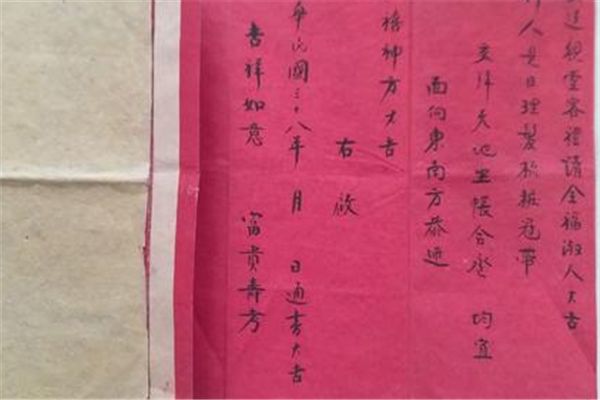 送親堂客禮請全福淑人大吉
人是日理髮於粧冠帶
並拜天地坐帳合卺 均宜
面向東南方恭迎
禧神方大吉
右啟
華民國三十八年 月 日通書大吉
吉祥如意 富貴壽考